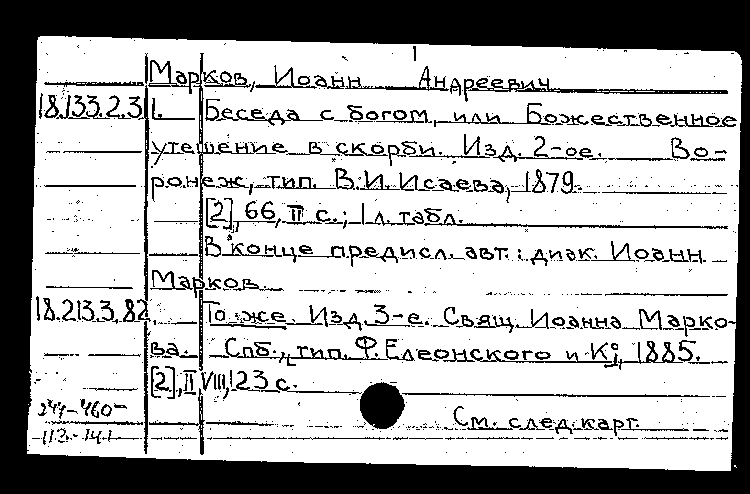 Марков, Иоанн Андреевич
18.133.2.31. Беседа с богом, или Божественное
утешение в скорби. Изд. 2-ое. Во-
ронеж, тип. В.И. Исаева, 1879.
[2], 66, II с.; 1 л. табл.
В конце предисл. авт.: диак. Иоанн
Марков.
18.213.3.82. То же. Изд. 3-е. Свящ. Иоанна Марко-
ва. Спб., тип. Ф. Елеонского и К°, 1885.
[2], II, VIII, 123 с.
244-460-
См. след. карт.
113-141